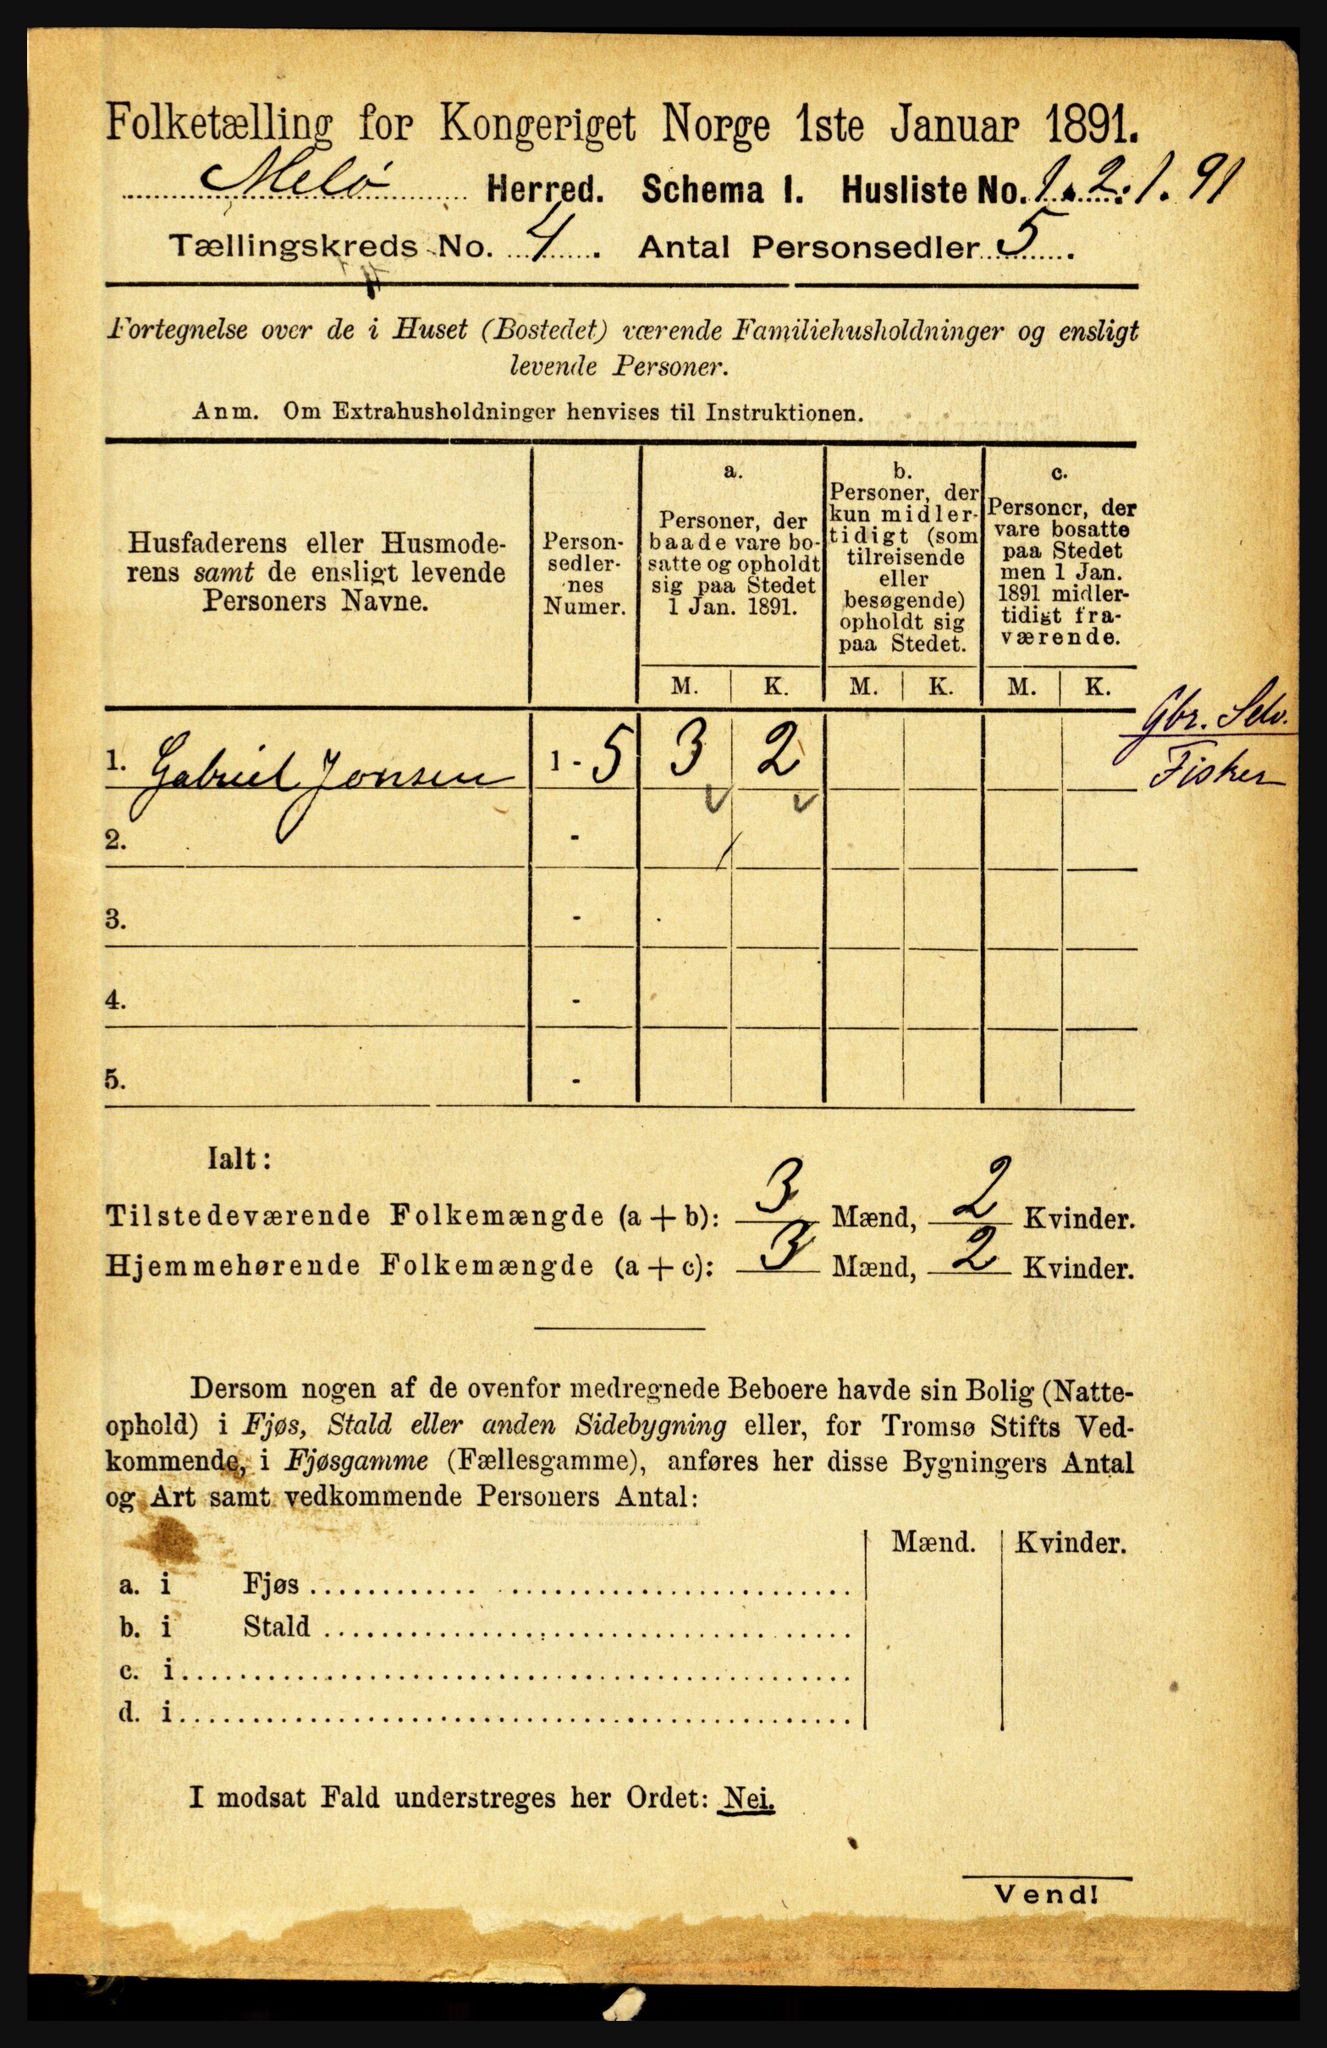 Folketælling for Kongeriget Norge 1ste Januar 1891.
Melø Herred. Schema I. Husliste No. 1. 2. 1. 91
Tællingskreds No. 4. Antal Personsedler 5.
Fortegnelse over de i Huset (Bostedet) værende Familiehusholdninger og ensligt
levende Personer.
Anm. Om Extrahusholdninger henvises til Instruktionen.
Husfaderens eller Husmode-
rens samt de ensligt levende
Personers Navne.
Person-
sedler-
nes
Numer.
a.
Personer, der
baade vare bo-
satte og opholdt
sig paa Stedet
1 Jan. 1891.
b.
Personer, der
kun midler-
tidigt (som
tilreisende
eller
besøgende)
opholdt sig
paa Stedet.
c.
Personer, der
vare bosatte
paa Stedet
men 1 Jan.
1891 midler-
tidigt fra-
værende.
M. K. M. K. M. K.
Gbr. Selv.
Fisker
1. Gabriel Jonsen 1 - 5 3 2
2. -
3. -
4. -
5. -
Ialt:
Tilstedeværende Folkemængde (a + b): 3 Mænd, 2 Kvinder.
Hjemmehørende Folkemængde (a + c): 3 Mænd, 2 Kvinder.
Dersom nogen af de ovenfor medregnede Beboere havde sin Bolig (Natte-
ophold) i Fjøs, Stald eller anden Sidebygning eller, for Tromsø Stifts Ved-
kommende, i Fjøsgamme (Fællesgamme), anføres her disse Bygningers Antal
og Art samt vedkommende Personers Antal:
Mænd. Kvinder.
a. i Fjøs
b. i Stald
c. i
d. i
I modsat Fald understreges her Ordet: Nei.
Vend!